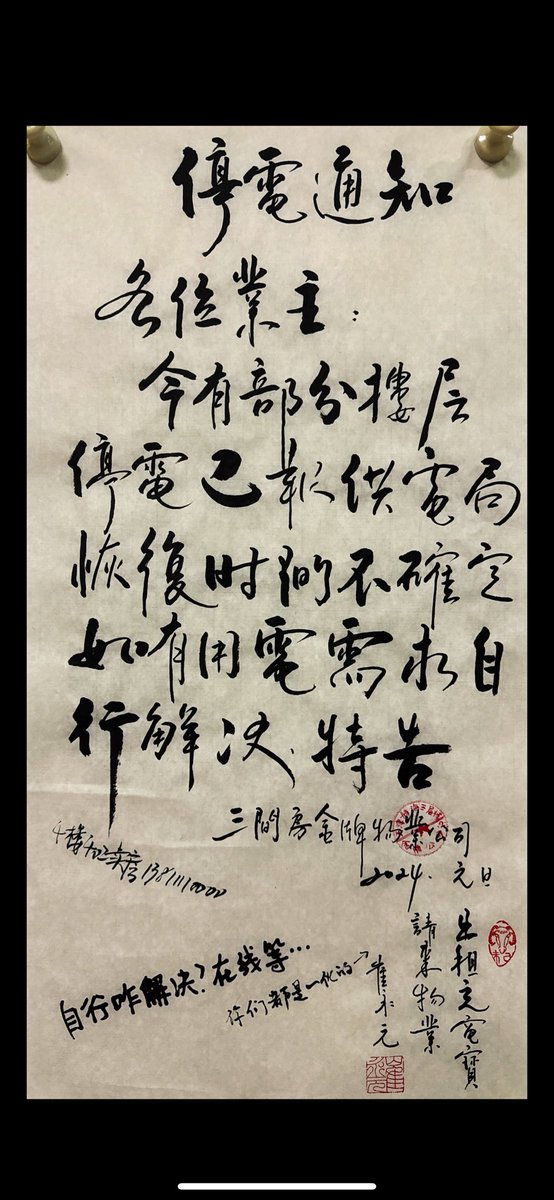 停電通知
各位業主：
今有部分樓层
停電已報供電局
恢復时間不確定
如有用電需求自
行解决.特告
三間房金牌物業公司
2024.元旦
自行咋解决？在线等…
你们都是一伙的→
崔永元
請聚物業
出租充電寶